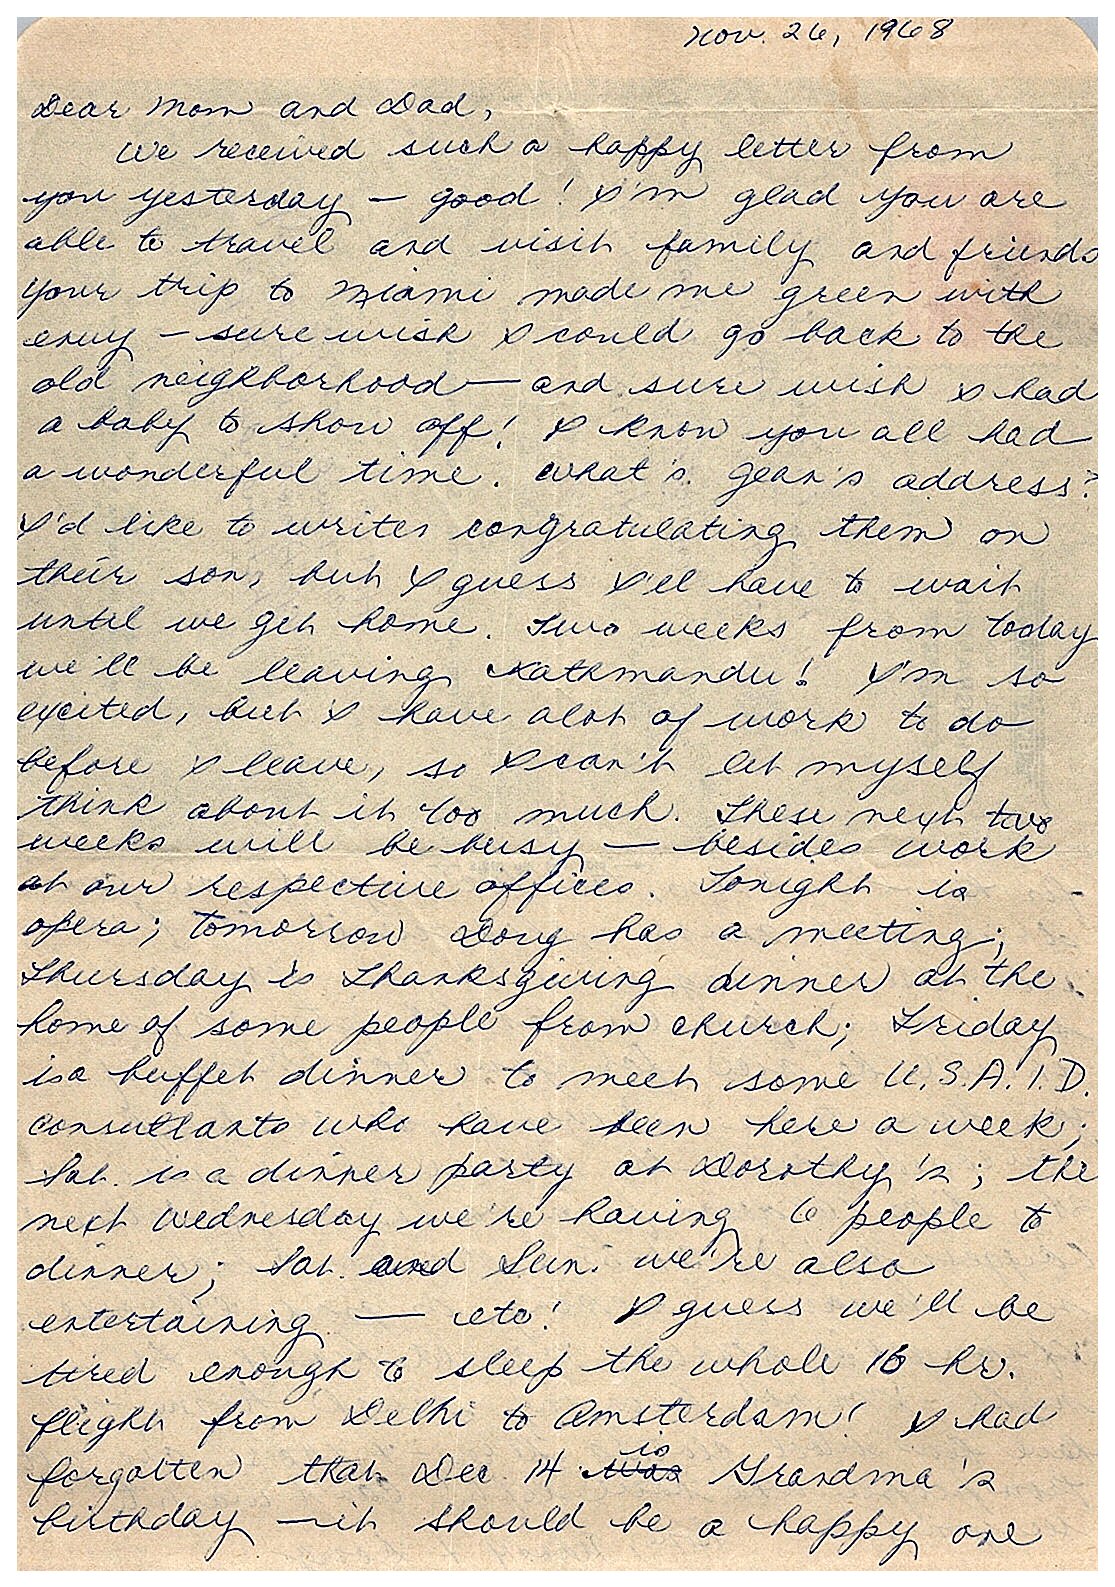 Nov. 26, 1968
Dear Mom and Dad,
We received such a happy letter from
you yesterday — good! I'm glad you are
able to travel and visit family and friends
Your trip to Miami made me green with
envy — sure wish I could go back to the
old neighborhood — and sure wish I had
a baby to show off! I know you all had
a wonderful time. What's Jean's address?
I'd like to write congratulating them on
their son, but I guess I'll have to wait
until we get home. Two weeks from today
we'll be leaving Kathmandu! I'm so
excited, but I have alot of work to do
before I leave, so I can't let myself
think about it too much. These next two
weeks will be busy — besides work
at our respective offices. Tonight is
opera; tomorrow Doug has a meeting;
Thursday is Thanksgiving dinner at the
home of some people from church; Friday
is a buffet dinner to meet some U.S.A.I.D.
consultants who have been here a week;
Sat. is a dinner party at Dorothy's; the
next Wednesday we're having 6 people to
dinner; Sat. and Sun. we're also
entertaining — etc! I guess we'll be
tired enough to sleep the whole 16 hr.
flight from Delhi to Amsterdam! I had
forgotten that Dec 14 was is Grandma's
birthday — it should be a happy one